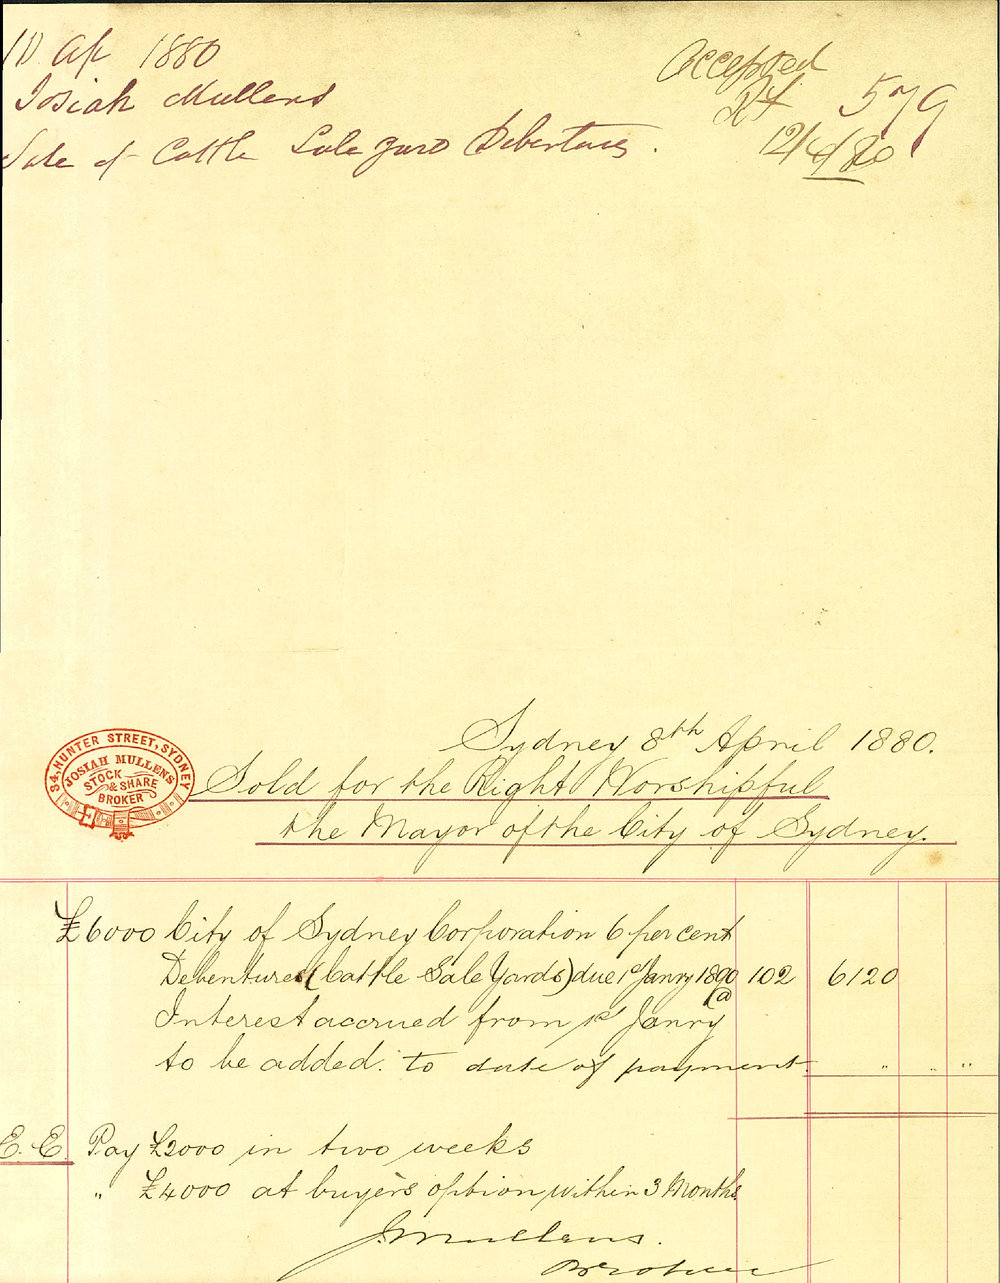 10 Ap 1880
Josiah Mullens
Sale of Cattle Sale Yard Debentures.
Accepted
579
12/4/80
Sydney 8th April 1880.
34, HUNTER STREET, SYDNEY
JOSIAH MULLENS
STOCK
& SHARE
BROKER
Sold for the Right Worshipful
the Mayor of the City of Sydney.
£6000 City of Sydney Corporation 6 per cent
Debentures (Cattle Sale Yards) due 1st Janry 1890 @ 102 6120
Interest accrued from 1st Janry
to be added to date of payment. " " "
E. E. Pay £2000 in two weeks
" £4000 at buyer's option within 3 Months
J Mullens.
Broker